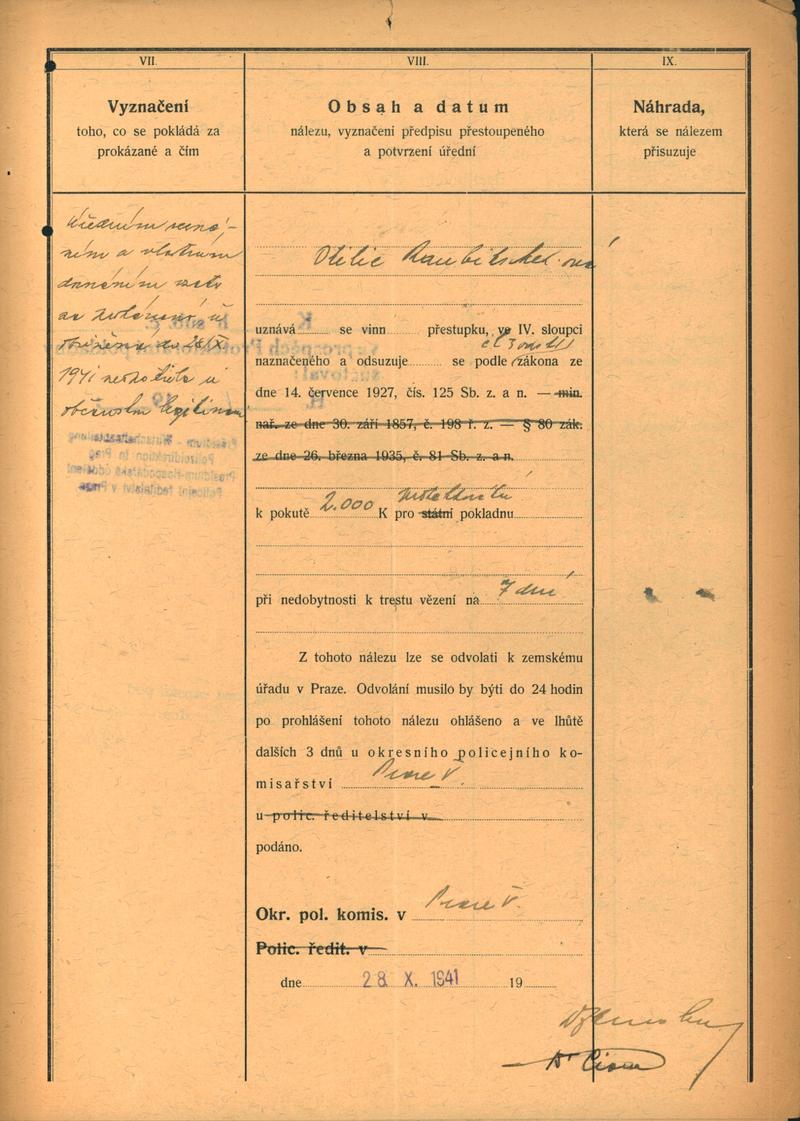 VII.
Vyznačení
toho, co se pokládá za
prokázané a čím
Úředním
ním a vlastním
doznáním
do 28/IX
1941
občanskou legitimaci
VIII.
Obsah a datum
nálezu, vyznačení předpisu přestoupeného
a potvrzení úřední
Otilie Raubitschek-ová
uznává se vinn přestupku, ve IV. sloupci
čl 3 odst
naznačeného a odsuzuje se podle zákona ze
dne 14. července 1927, čís. 125 Sb. z. a n. — min.
nař. ze dne 30. září 1857, č. 198 ř. z. — § 80 zák.
ze dne 26. března 1935, č. 81 Sb. z. a n.
k pokutě 2.000 K pro státní pokladnu
při nedobytnosti k trestu vězení na 7 dní
Z tohoto nálezu lze se odvolati k zemskému
úřadu v Praze. Odvolání musilo by býti do 24 hodin
po prohlášení tohoto nálezu ohlášeno a ve lhůtě
dalších 3 dnů u okresního policejního ko-
misařství Praze V.
u polic. ředitelství v
podáno.
Okr. pol. komis. v Praze V.
Polic. ředit. v
dne 28. X. 1941 19
IX.
Náhrada,
která se nálezem
přisuzuje